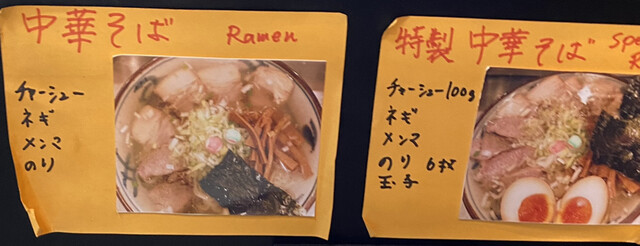 中華そば Ramen
チャーシュー
ネギ
メンマ
のり
特製 中華そば
チャーシュー100g
ネギ
メンマ
のり 6枚
玉子